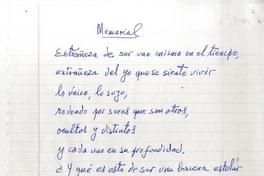 Memorial
Extrañeza de ser uno mismo en el tiempo,
extrañeza del yo que se siente vivir
lo único, lo suyo,
rodeado por seres que son otros,
ocultos y distintos
y cada uno en su profundidad.
d Y qué es esto de ser una estelar